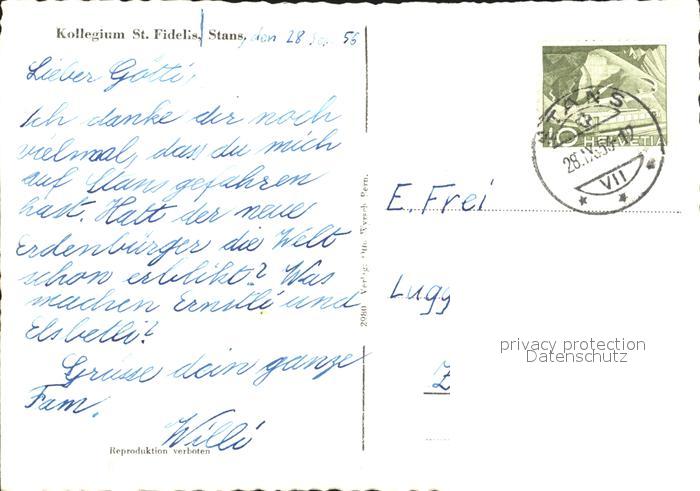 Kollegium St. Fidelis, Stans, den 28 Sep. 56
Lieber Götti,
Ich danke dir noch
vielmal, dass du mich
auf Stans gefahren
hast. Hatt der neue
Erdenbürger die Welt
schon erblikt? Was
machen Ernstli und
Elsbetli?
Grüsse dein ganze
Fam.
Willi
Reproduktion verboten
2980 Verlag: Otto Wyrsch, Bern.
HELVETIA
STANS
28.IX.56-17
VII
E. Frei
Lugg
Z
privacy protection
Datenschutz